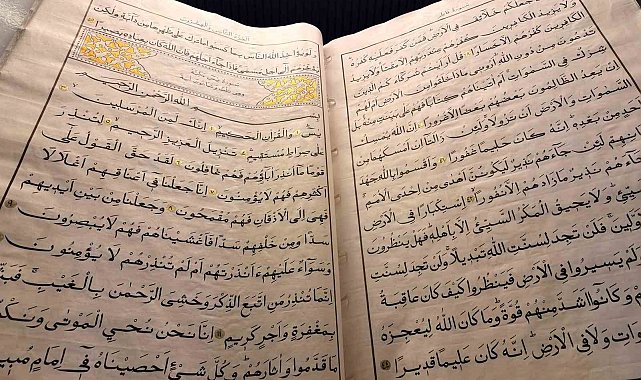 سورة فاطر
جعلكم خلائف في الأرض فمن كفر فعليه كفره
ولا يزيد الكافرين كفرهم عند ربهم إلا مقتا ولا يزيد
الكافرين كفرهم إلا خسارا قل أرأيتم شركاءكم الذين
تدعون من دون الله أروني ماذا خلقوا من الأرض أم لهم
شرك في السموات أم آتيناهم كتابا فهم على بينت منه بل
إن يعد الظالمون بعضهم بعضا إلا غرورا إن الله يمسك
السموات والأرض أن تزولا ولئن زالتا إن أمسكهما من
أحد من بعده إنه كان حليما غفورا وأقسموا بالله جهد
أيمانهم لئن جاءهم نذير ليكونن أهدى من إحدى الأمم
جاءهم نذير ما زادهم إلا نفورا استكبارا في الأرض
السيئ ولا يحيق المكر السيئ إلا بأهله فهل ينظرون
فلن تجد لسنت الله تبديلا ولن تجد لسنت
لم يسيروا في الأرض فينظروا كيف كان عاقبة
وكانوا أشد منهم قوة وما كان الله ليعجزه
ولا في الأرض إنه كان عليما قديرا
الجزء الثاني والعشرون
ولو يؤاخذ الله الناس بما كسبوا ما ترك على ظهرها من دابة ولكن
يؤخرهم إلى أجل مسمى فإذا جاء أجلهم فإن الله كان بعباده بصيرا
بسم الله الرحمن الرحيم
يس والقرآن الحكيم إنك لمن المرسلين
على صراط مستقيم تنزيل العزيز الرحيم لتنذر
قوما ما أنذر آباؤهم فهم غافلون لقد حق القول على
أكثرهم فهم لا يؤمنون إنا جعلنا في أعناقهم أغلالا
فهي إلى الأذقان فهم مقمحون وجعلنا من بين أيديهم
سدا ومن خلفهم سدا فأغشيناهم فهم لا يبصرون
وسواء عليهم ءأنذرتهم أم لم تنذرهم لا يؤمنون
إنما تنذر من اتبع الذكر وخشي الرحمن بالغيب فبشره
بمغفرة وأجر كريم إنا نحن نحي الموتى ونكتب
ما قدموا وآثارهم وكل شيء أحصيناه في إمام مبين